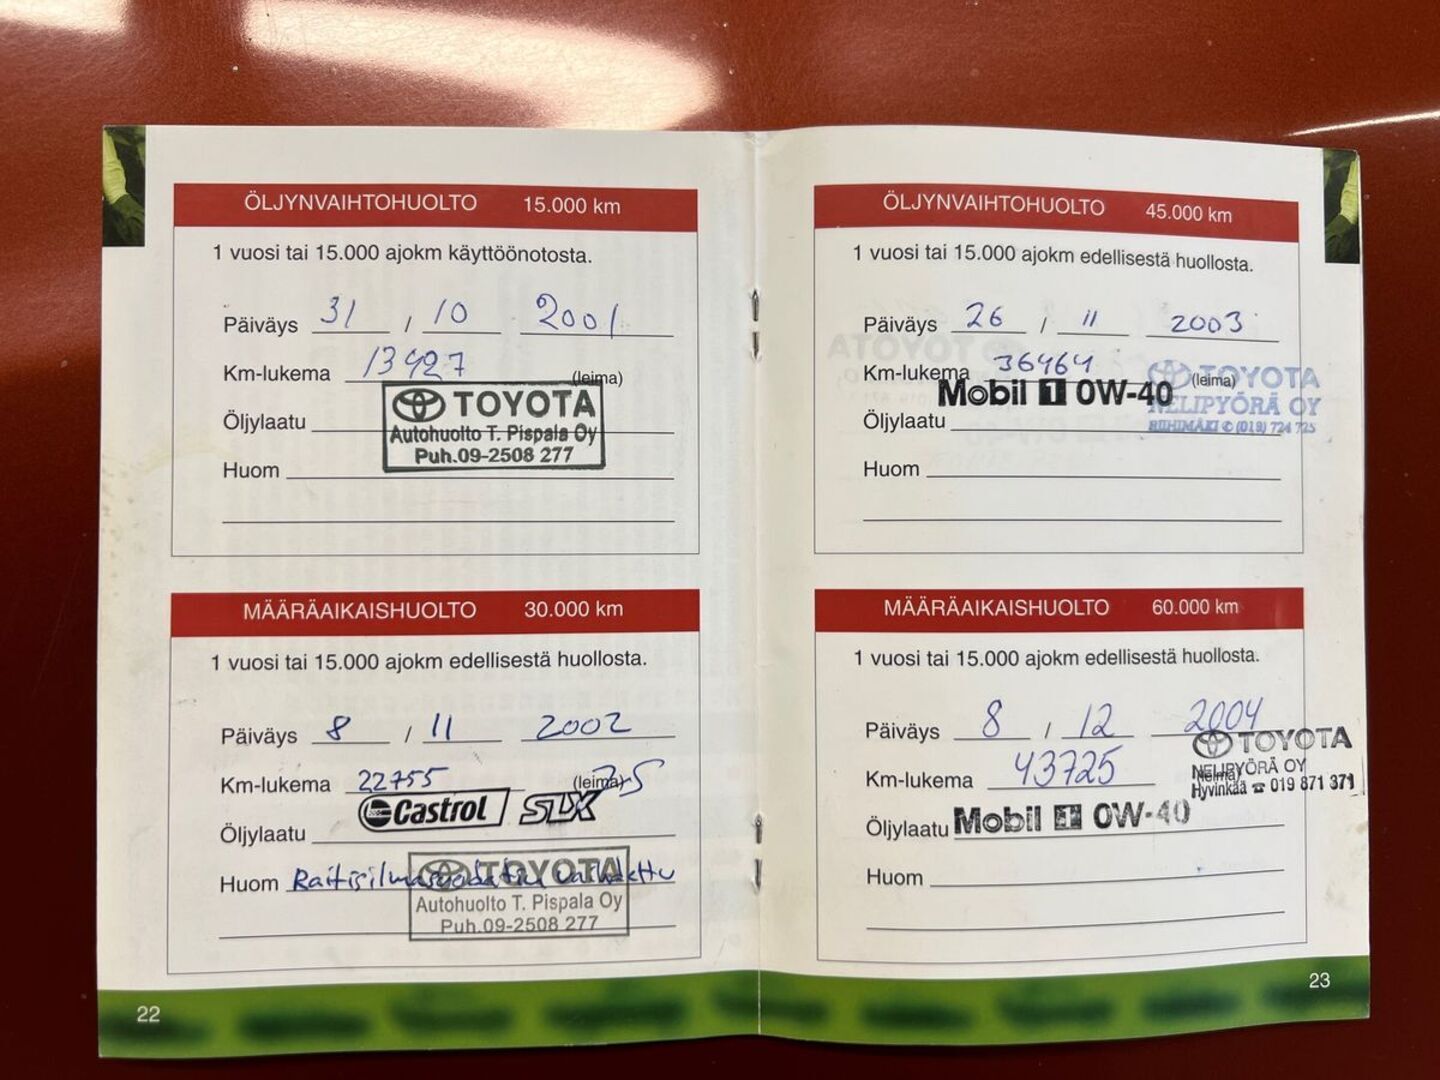 ÖLJYNVAIHTOHUOLTO 15.000 km
1 vuosi tai 15.000 ajokm käyttöönotosta.
Päiväys 31 / 10 2001
Km-lukema 13427
(leima)
TOYOTA
Öljylaatu
Autohuolto T. Pispala Oy
Puh.09-2508 277
Huom
MÄÄRÄAIKAISHUOLTO 30.000 km
1 vuosi tai 15.000 ajokm edellisestä huollosta.
Päiväys 8 / 11 2002
Km-lukema 22755 (leima)
Castrol SLX
Öljylaatu
Huom Raitisilmasuodatin vaihdettu
TOYOTA
Autohuolto T. Pispala Oy
Puh.09-2508 277
22
ÖLJYNVAIHTOHUOLTO 45.000 km
1 vuosi tai 15.000 ajokm edellisestä huollosta.
Päiväys 26 / 11 2003
Km-lukema 36464 (leima)
TOYOTA
Mobil 1 0W-40
NELIPYÖRÄ OY
Öljylaatu
RIIHIMÄKI (019) 724 725
Huom
MÄÄRÄAIKAISHUOLTO 60.000 km
1 vuosi tai 15.000 ajokm edellisestä huollosta.
Päiväys 8 / 12 2004
TOYOTA
Km-lukema 43725 (leima)
NELIPYÖRÄ OY
Hyvinkää ☎ 019 871 371
Öljylaatu Mobil 1 0W-40
Huom
23